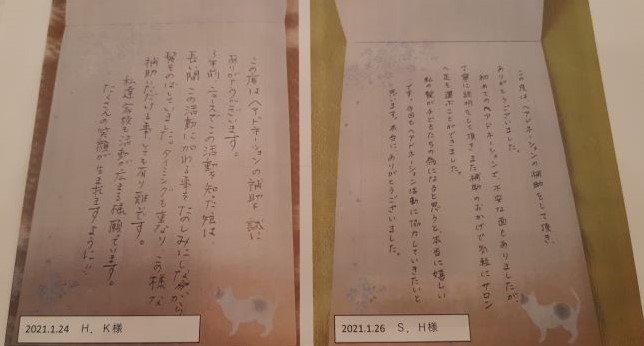 この度は ヘアドネーションの補助を 誠に
ありがとうございます。
3年前 ニュースでこの活動を知った娘は、
長い間 この活動に加わる事をたのしみにしながら
髪をのばしていました。タイミングも重なり この様な
補助いただける事 とても有り難いです。
私達家族も活動が広まる様 願っています。
たくさんの笑顔が生まれますように!!
2021.1.24 H．K様
この度は ヘアドネーションの補助をして頂き、
ありがとうございました。
初めてのヘアドネーションで、不安な面もありましたが
丁寧に説明をして頂き また補助のおかげで気軽にサロン
へ足を運ぶことができました。
私の髪が子どもたちの為になると思うと、本当に嬉しい
です。今回もヘアドネーション活動に協力していきたいと
思います。本当にありがとうございました。
2021.1.26 S．H様